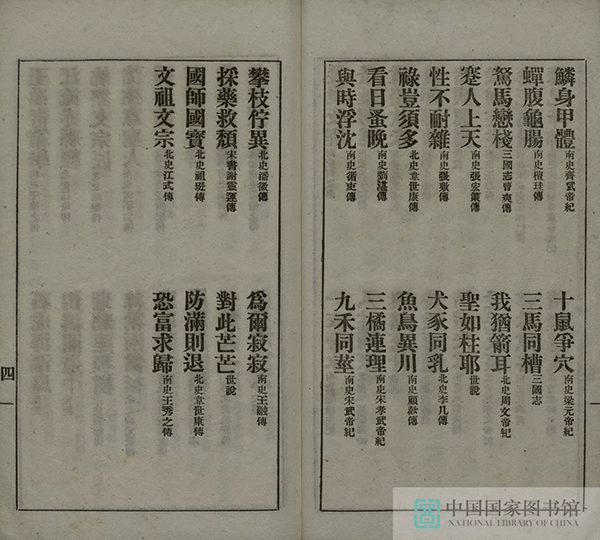 鱗身甲體 南史齊武帝紀 十鼠爭穴 南史梁元帝紀
蟬腹龜腸 南史檀珪傳 三馬同槽 三國志
駑馬戀棧 三國志曹爽傳 我猶箭耳 北史周文帝紀
蹇人上天 南史張宏策傳 聖如柱耶 世說
性不耐雜 南史張敷傳 犬豕同乳 北史李几傳
祿豈須多 北史韋世康傳 魚鳥異川 南史顧歡傳
看日蚤晚 南史劉湛傳 三橘連理 南史宋孝武帝紀
與時浮沈 南史循吏傳 九禾同莖 南史宋武帝紀
攀枝佇異 北史潘徽傳 爲爾寂寂 南史王融傳
採藥救頹 宋書謝靈運傳 對此芒芒 世說
國師國寶 北史祖珽傳 防滿則退 北史韋世康傳
文祖文宗 北史江式傳 恐富求歸 南史王秀之傳
四
中国国家图书馆
NATIONAL LIBRARY OF CHINA